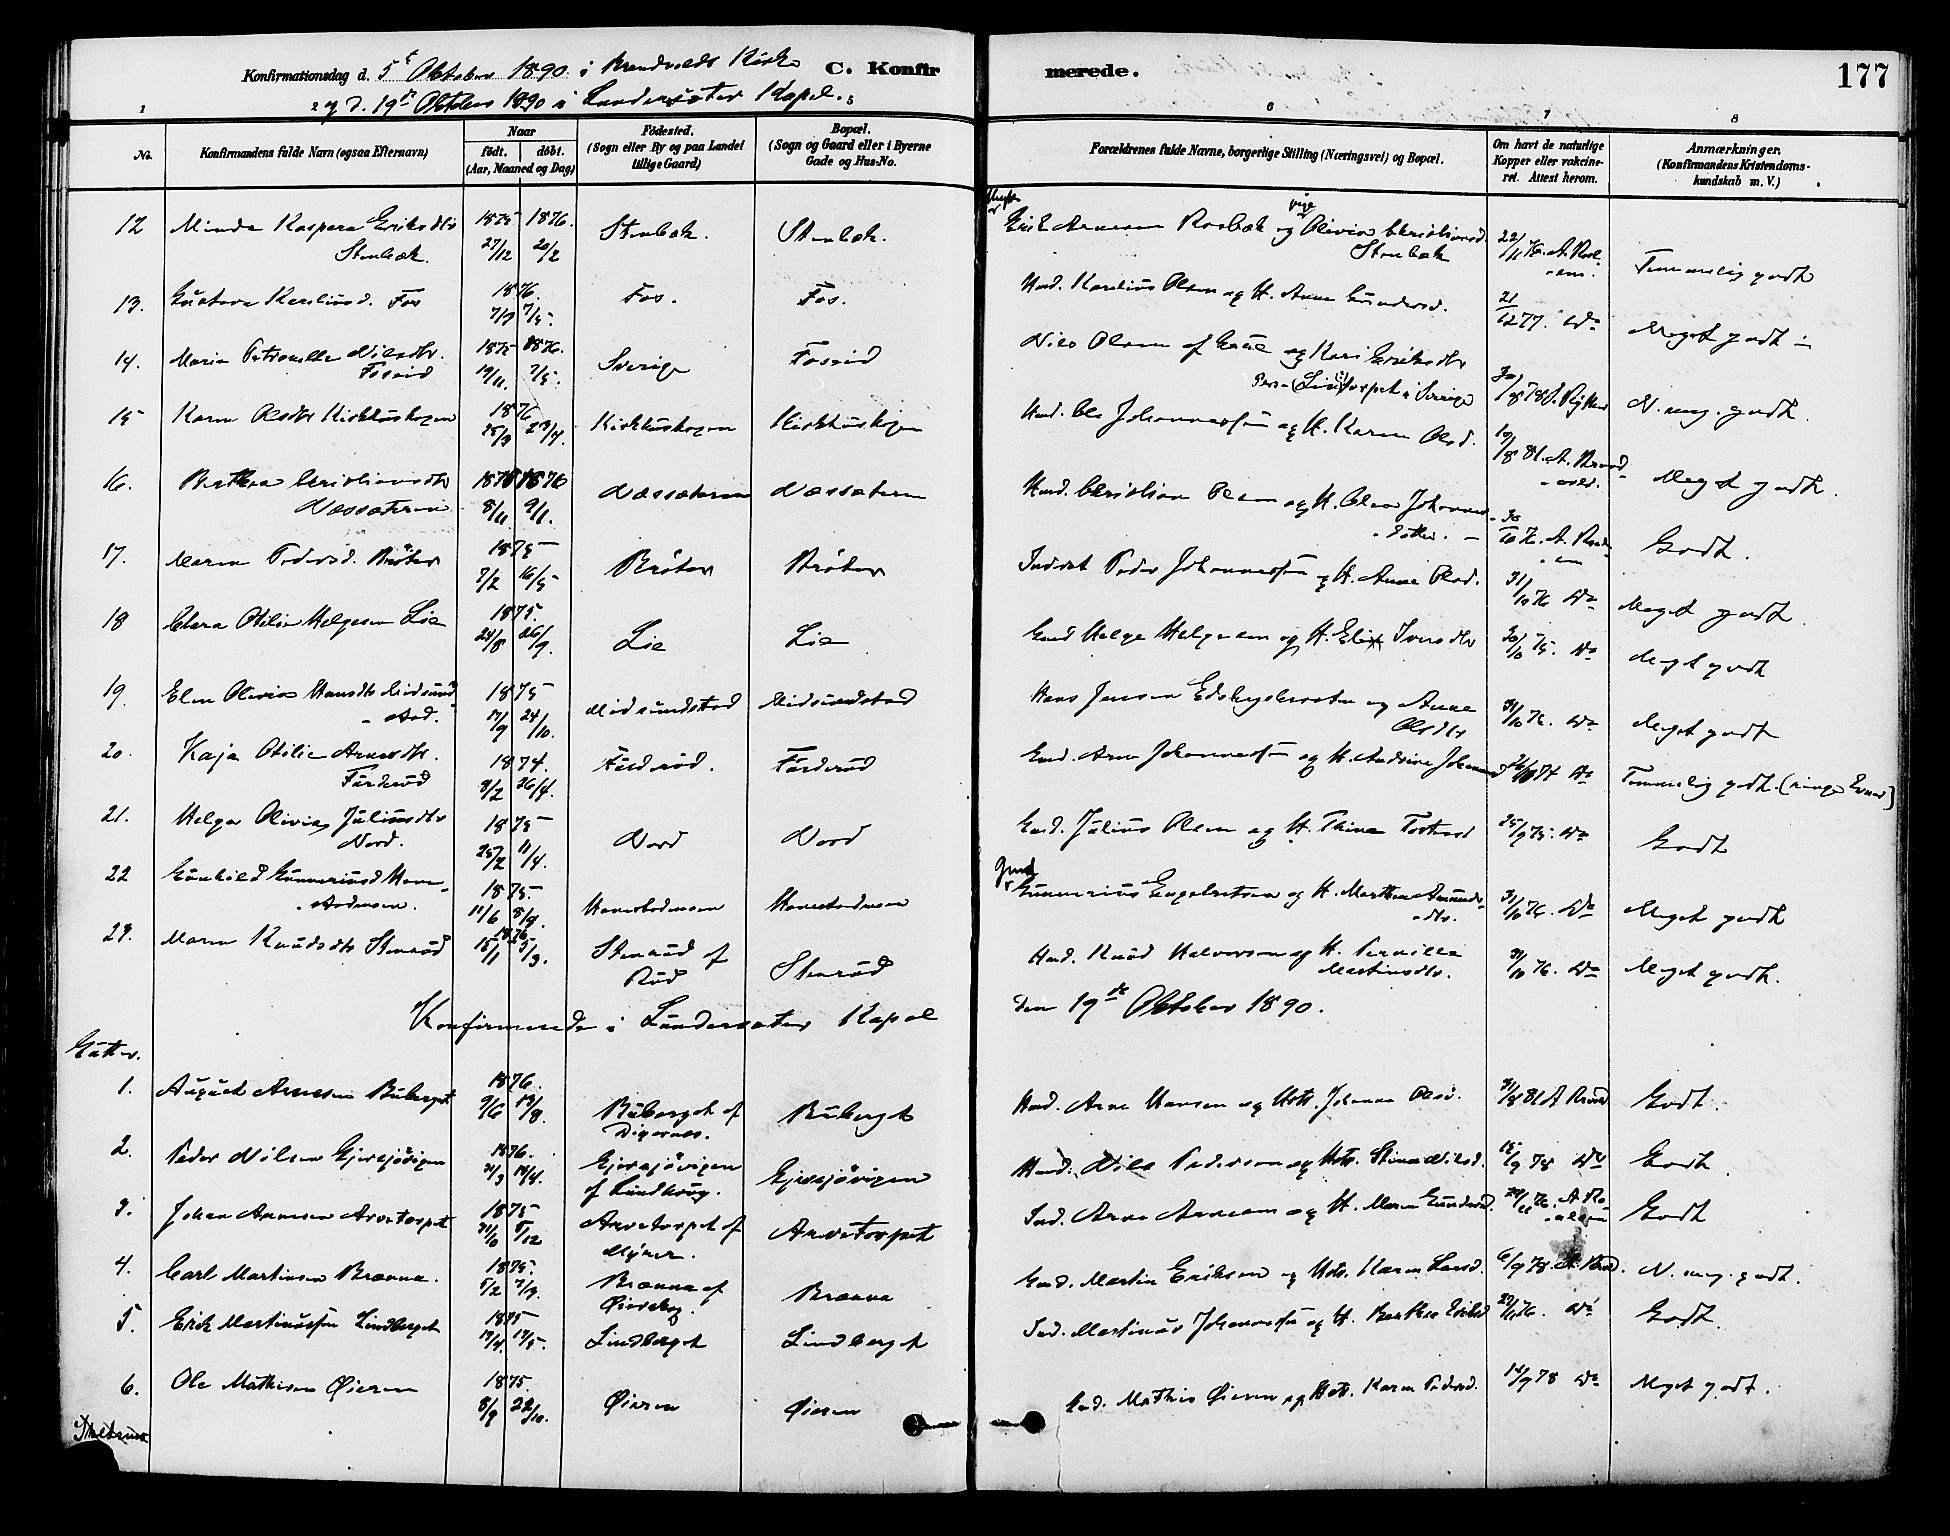 Konfirmationsdag d. 5t Oktober 1890 i Brandvolds Kirke C. Konfirmerede. 177
og d. 19de Oktober 1890 i Lundersæter Kapel.
1 2 5 6 7 8
No. Konfirmandens fulde Navn (ogsaa Efternavn) Naar født. døbt. (Aar, Maaned og Dag) Födested. (Sogn eller By og paa Landet tillige Gaard) Bopæl. (Sogn og Gaard eller i Byerne Gade og Hus-No. Forældrenes fulde Navne, borgerlige Stilling (Næringsvei) og Bopæl. Om havt de naturlige Kopper eller vakcineret. Attest herom. Anmærkninger. (Konfirmandens Kristendomskundskab m. V.)
12 Minda Kaspara Eriksdtr Stenbæk. 1875 27/12 1876. 20/2 Stenbæk. Stenbæk. Erik Arnesen Rosbæk og pige Olivia Christiansd. Stenbæk 22/11 76. Temmelig godt
13. Gustava Kareliusd. Fos 1876. 7/5. Fos. Fos. Karelius Olsen og H. Anne Gundersd. 21/12 77. Do Meget godt
14. Maria Petronelle Nilsdtr. Foseid 1875 19/11. 1876. 7/5. Sverige Foseid Nils Olsen og Kari Eriksdtr i Sverige 30/8 78 N. meg. godt.
15 Karen Olsdtr Kirkhuskogen 1876 25/3 23/4. Kirkhuskogen Kirkhuskogen Ole Johannessen og H. Karen Olsd. 19/8 81. Meget godt.
16. Berthea Christiansdtr Næssæteren 8/11 1876 9/1. Næssæteren Næssæteren Christian Olsen og H. Olava Johannesdotter. 30/10 76. Godt.
17. Maren Pedersd. Bröten 1875 7/2 16/5 Bröten Bröten Inderst Peder Johannessen og H. Anne Olsd. 31/10 76 Do Meget godt.
18 Clara Otilie Helgesen Lie 1875. 24/8 26/9. Lie Lie Helge Helgesen og H. Eli Iversdtr 30/10 75. Do Meget godt
19. Elen Olivia Hansdtr Midsundstad. 1875 17/9 24/10. Midsundstad Midsundstad Hans Jensen og Anne Olsdtr 31/10 76. Do Meget godt
20. Kaja Otilie Arnesdtr. Furderud 1874. 8/2 26/4. Furderud. Furderud Arne Johannessen og H. Andrine Do Temmelig godt. (ringe Evner)
21. Helga Olivia Juliusdtr Nord. 1875 25/2 11/4. Nord Nord Julius Olsen og H. Thina 25/9 75. Do Godt
22 Gunhild Gunneriusd 1875. 11/6 Gunnerius Engebretsen og H. Marthea Amundsdtr. 31/10 76. Do Meget godt
23. Maren Knudsdtr Stenrud 1876 15/1 5/3. Stenrud af Rud Stenrud Knud Halvorsen og H. Pernille Martinsdtr. 31/10 76. Do Meget godt.
Konfirmerede i Lundersæter Kapel den 19de Oktober 1890.
Gutter.
1. August Arnesen Buberget 1876. 9/6 13/8. Buberget af Digernes. Buberget Arne Hansen og Hstr. Johanne Olsd. 31/8 81 Godt.
2. Peder Nilsen Gjersjøvigen 1876. Gjersjøvigen af Lundkoug. Gjersjøvigen Nils Pedersen og Hstr. Stina Nilsd. 15/9 78 Do Godt.
3. Johan Arnesen Arvetorpet 1875 31/10 5/12 Arvetorpet af Myren. Arvetorpet Ind. Arne Arnesen og H. Maren Gundersd. 76. Godt
4. Carl Martinsen Brænna. 1875. 5/2 7/3. Brænna af Brænna Martin Eriksen og Hstr. Karen Larsd. 6/9 78. N. meg. godt.
5. Erik Martinussen Lindberget 1875 Lindberget Lindberget Ind. Martinus Johannessen og H. Berthea 76. Do Godt.
6. Ole Mathisen Øieren 1875. 8/9 22/10. Øieren Øieren Mathis Øieren og Hstr. Karen Pedersd. 14/9 78 Do Meget godt.